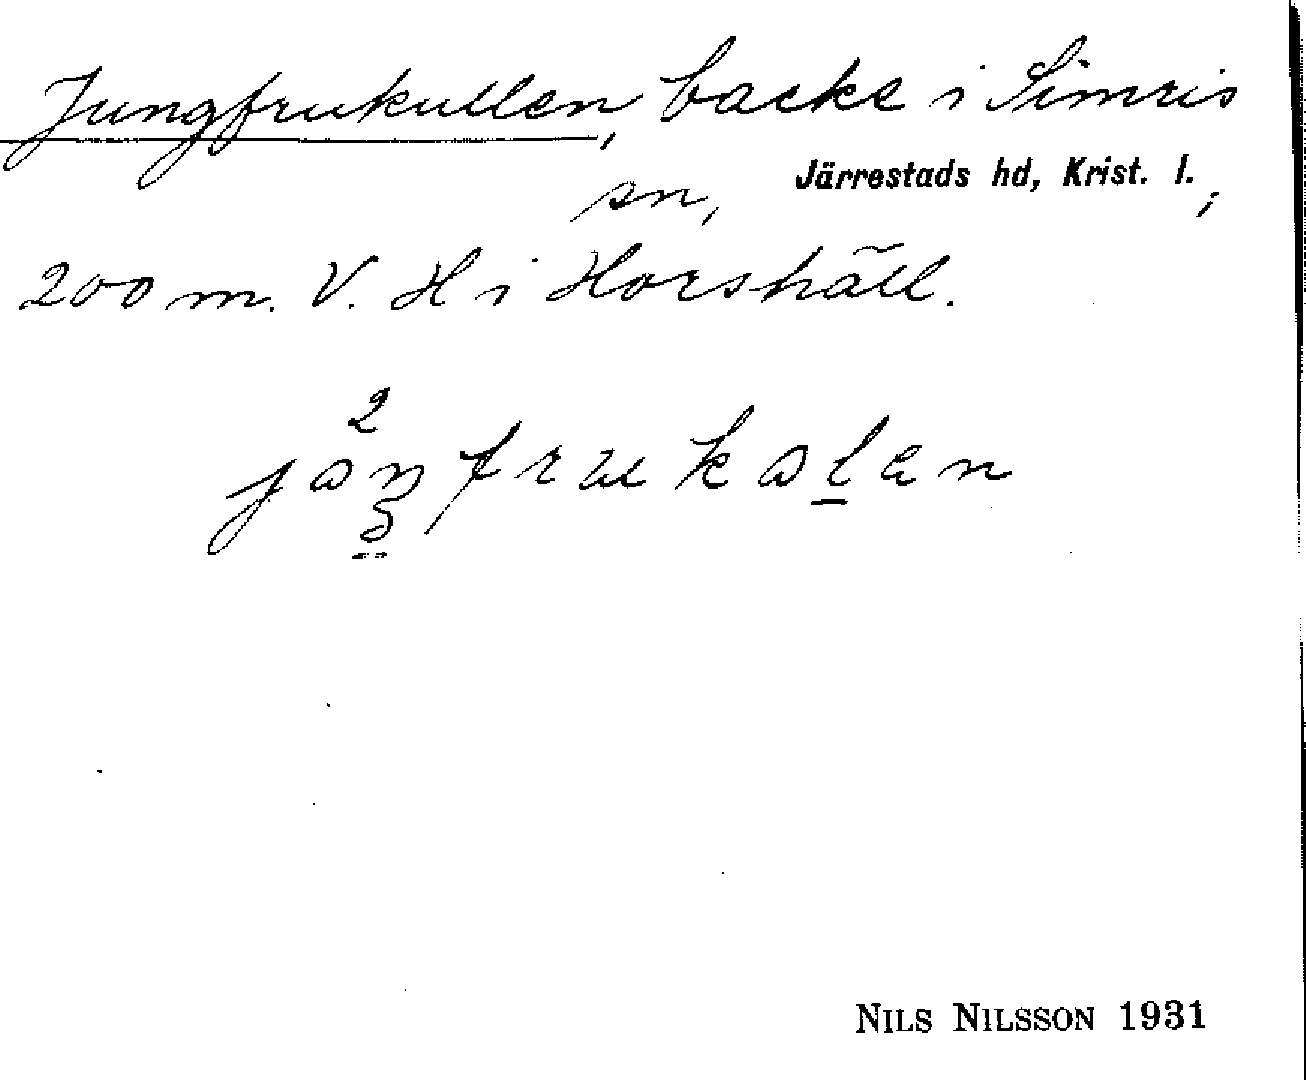 Jungfrukullen, backe i Simris
sn, Järrestads hd, Krist. l.,
200 m. V. H i Horshäll.
NILS NILSSON 1931